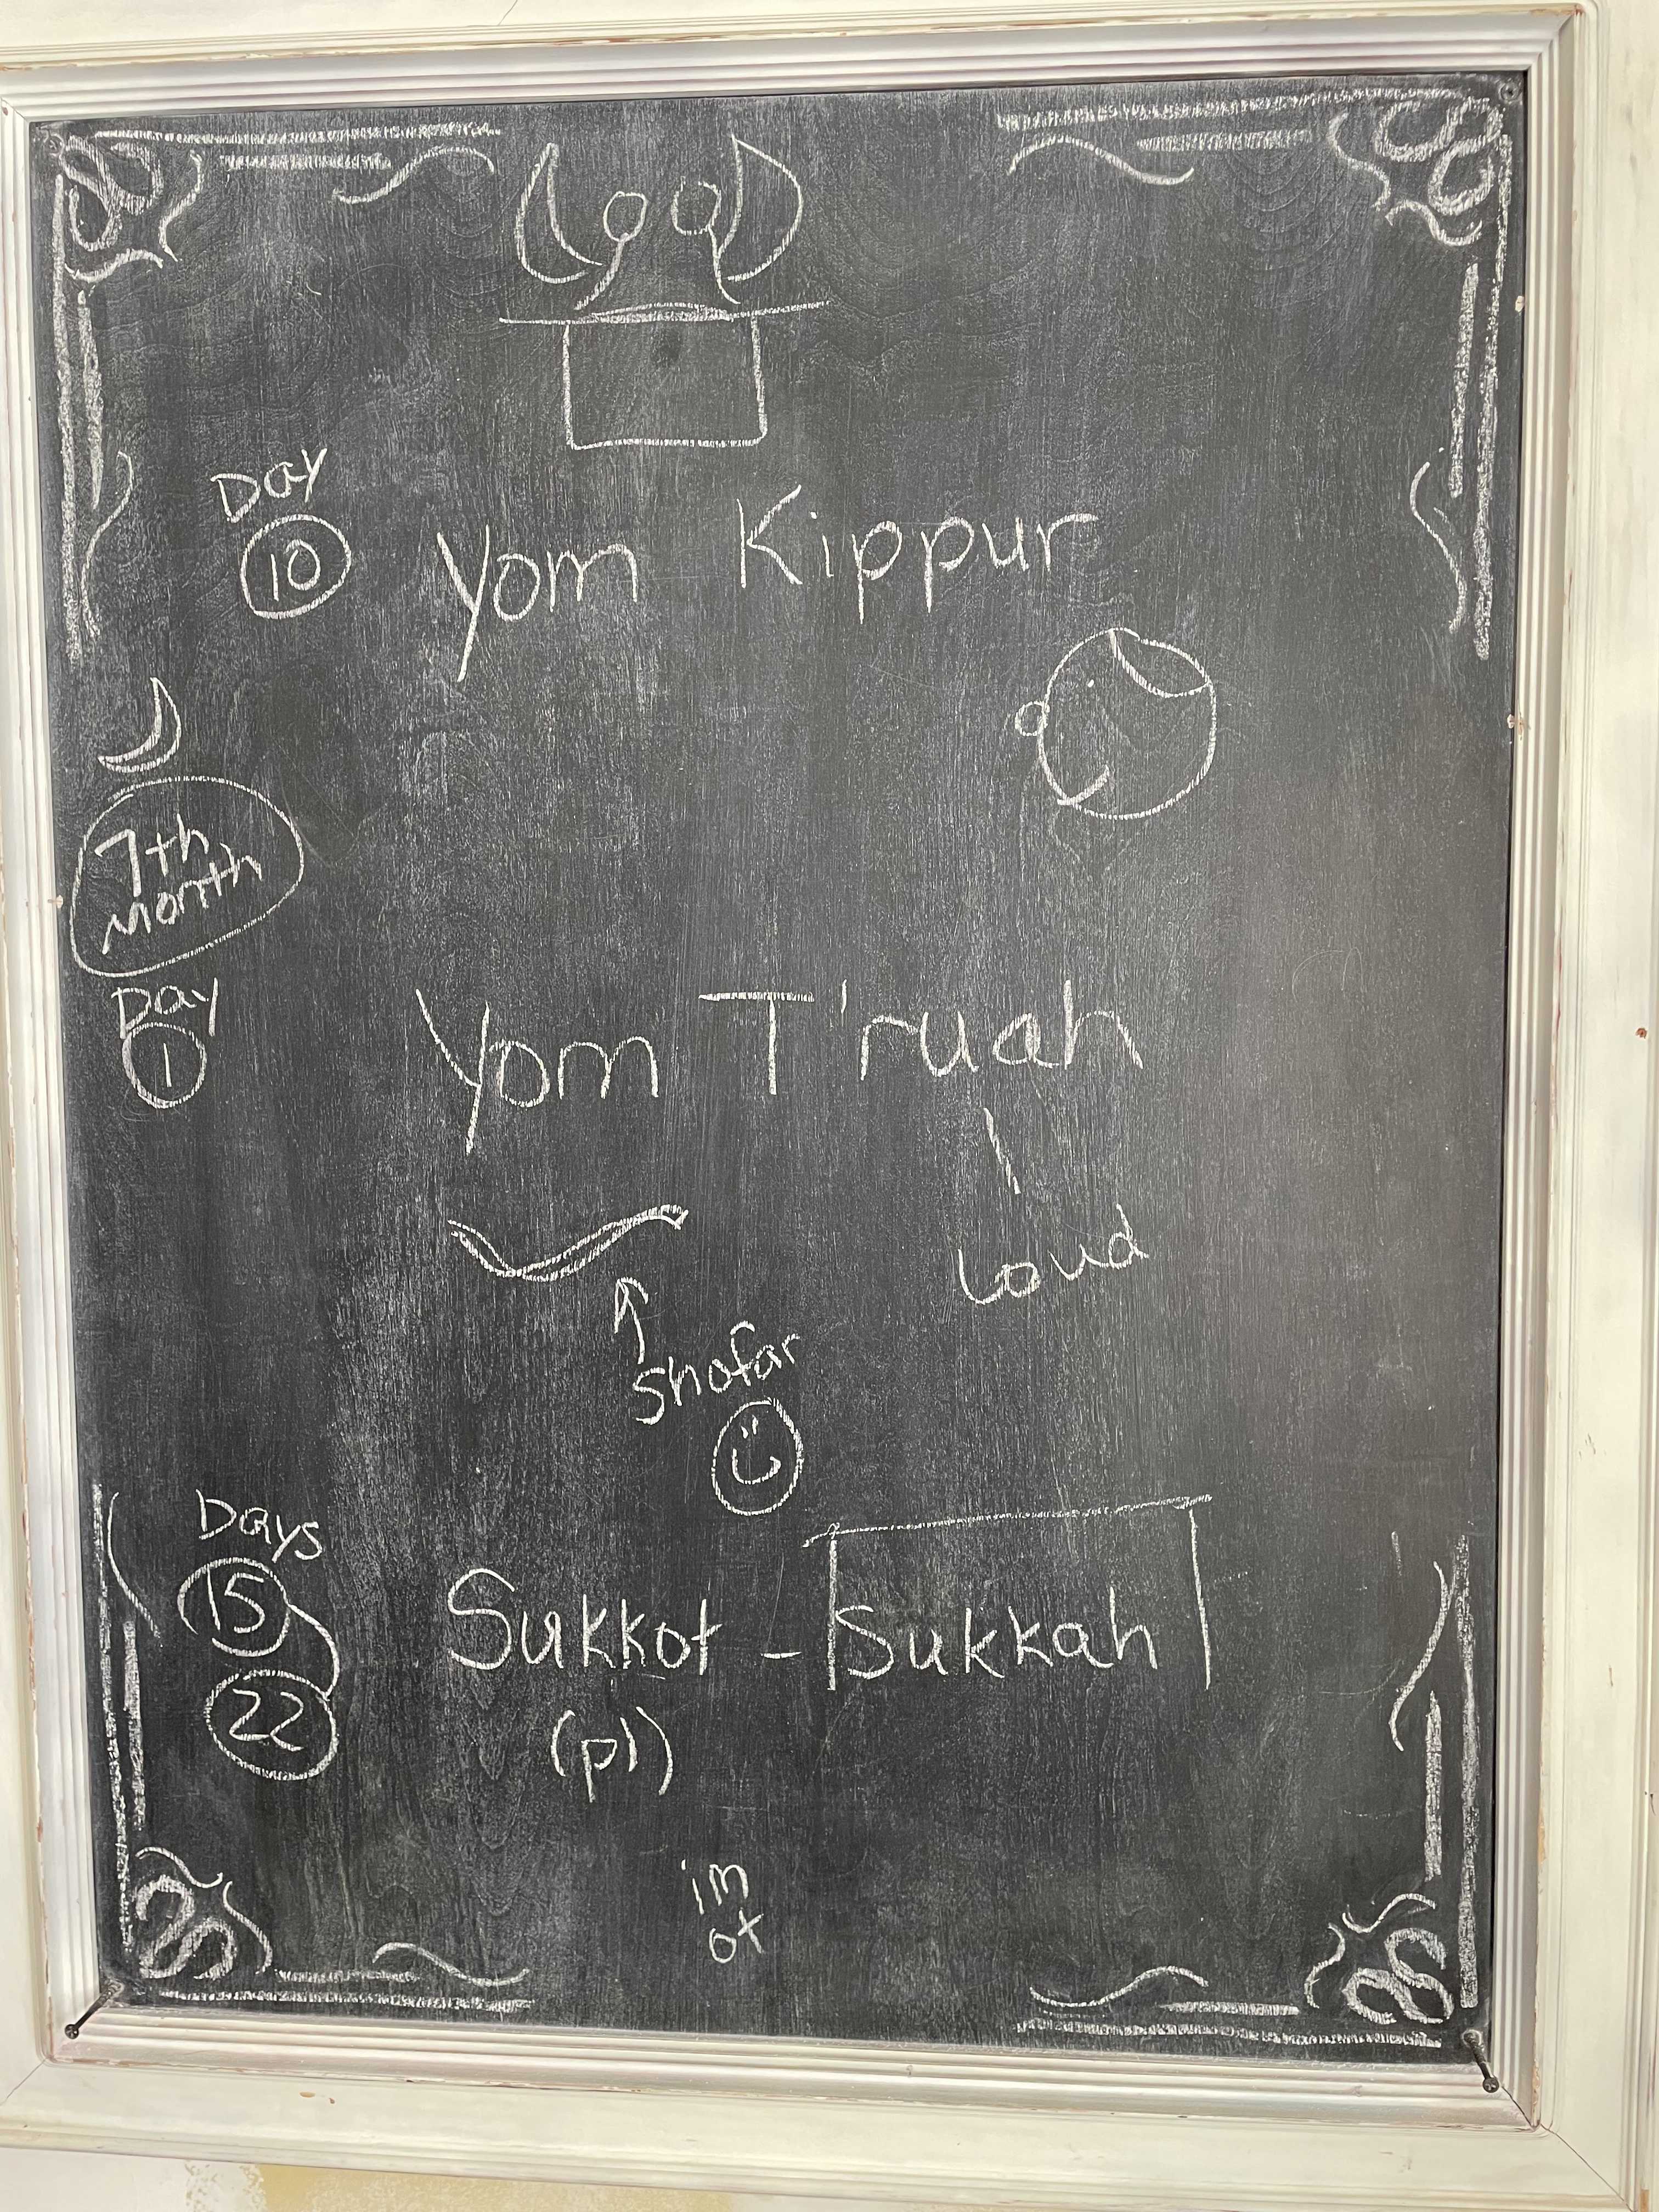 Day
10 Yom Kippur
7th
Month
Day
1 Yom T'ruah
Loud
Shofar
Days
15 Sukkot - Sukkah
22
(pl)
im
ot